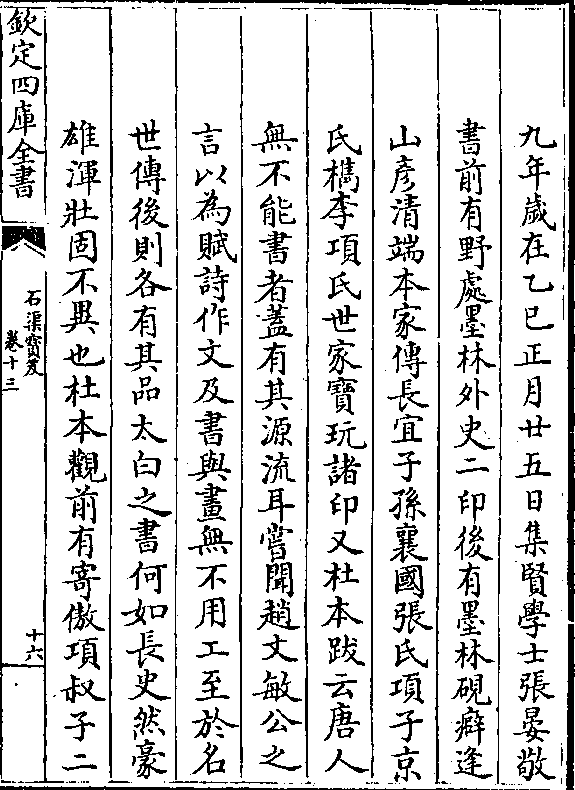 九年歲在乙巳正月廿五日集賢學士張晏敬
書前有野處墨林外史二印後有墨林硯癖逢
山彥清端本家傳長宜子孫襄國張氏項子京
氏檇李項氏世家寶玩諸印又杜本跋云唐人
無不能書者蓋有其源流耳嘗聞趙文敏公之
言以為賦詩作文及書與畫無不用工至於名
世傳後則各有其品太白之書何如長史然豪
雄渾壯固不異也杜本觀前有寄傲項叔子二
欽定四庫全書
石渠寶笈
卷十三
十六